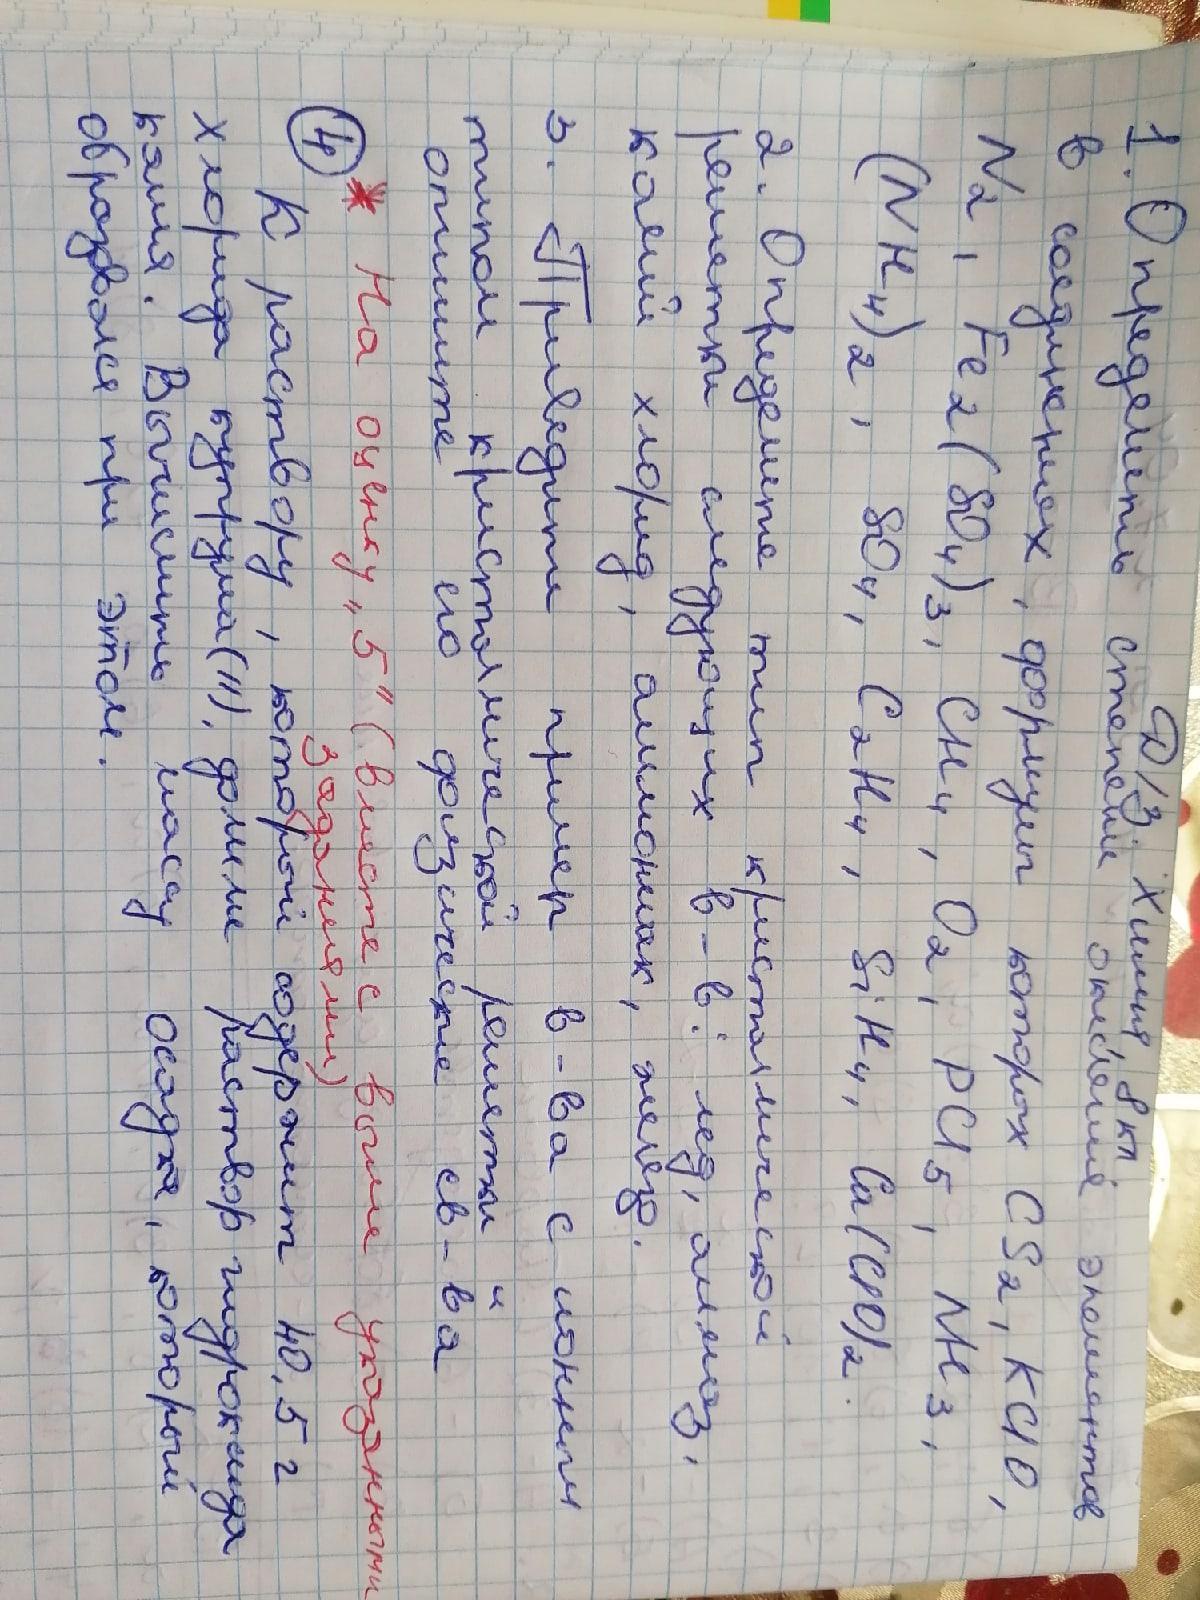 Д/З. Химия, 8 кл
1. Определить степени окисления элементов
в соединениях, формулы которых CS2, KClO,
N2, Fe2(SO4)3, CH4, O2, PCl5, NH3,
(NH4)2, SO4, C2H4, SiH4, Ca(ClO)2.
2. Определите тип кристаллической
решетки следующих в-в: лед, алмаз,
калий хлорид, аммониак, железо.
3. Приведите пример в-ва с ионным
типом кристаллической решетки и
опишите его физические св-ва
* На оценку „5" (вместе с выше указанными
заданиями)
4 К раствору, который содержит 40,5 г
хлорида купрума(II), долили раствор гидроксида
калия. Вычислить массу осадка, который
образовался при этом.